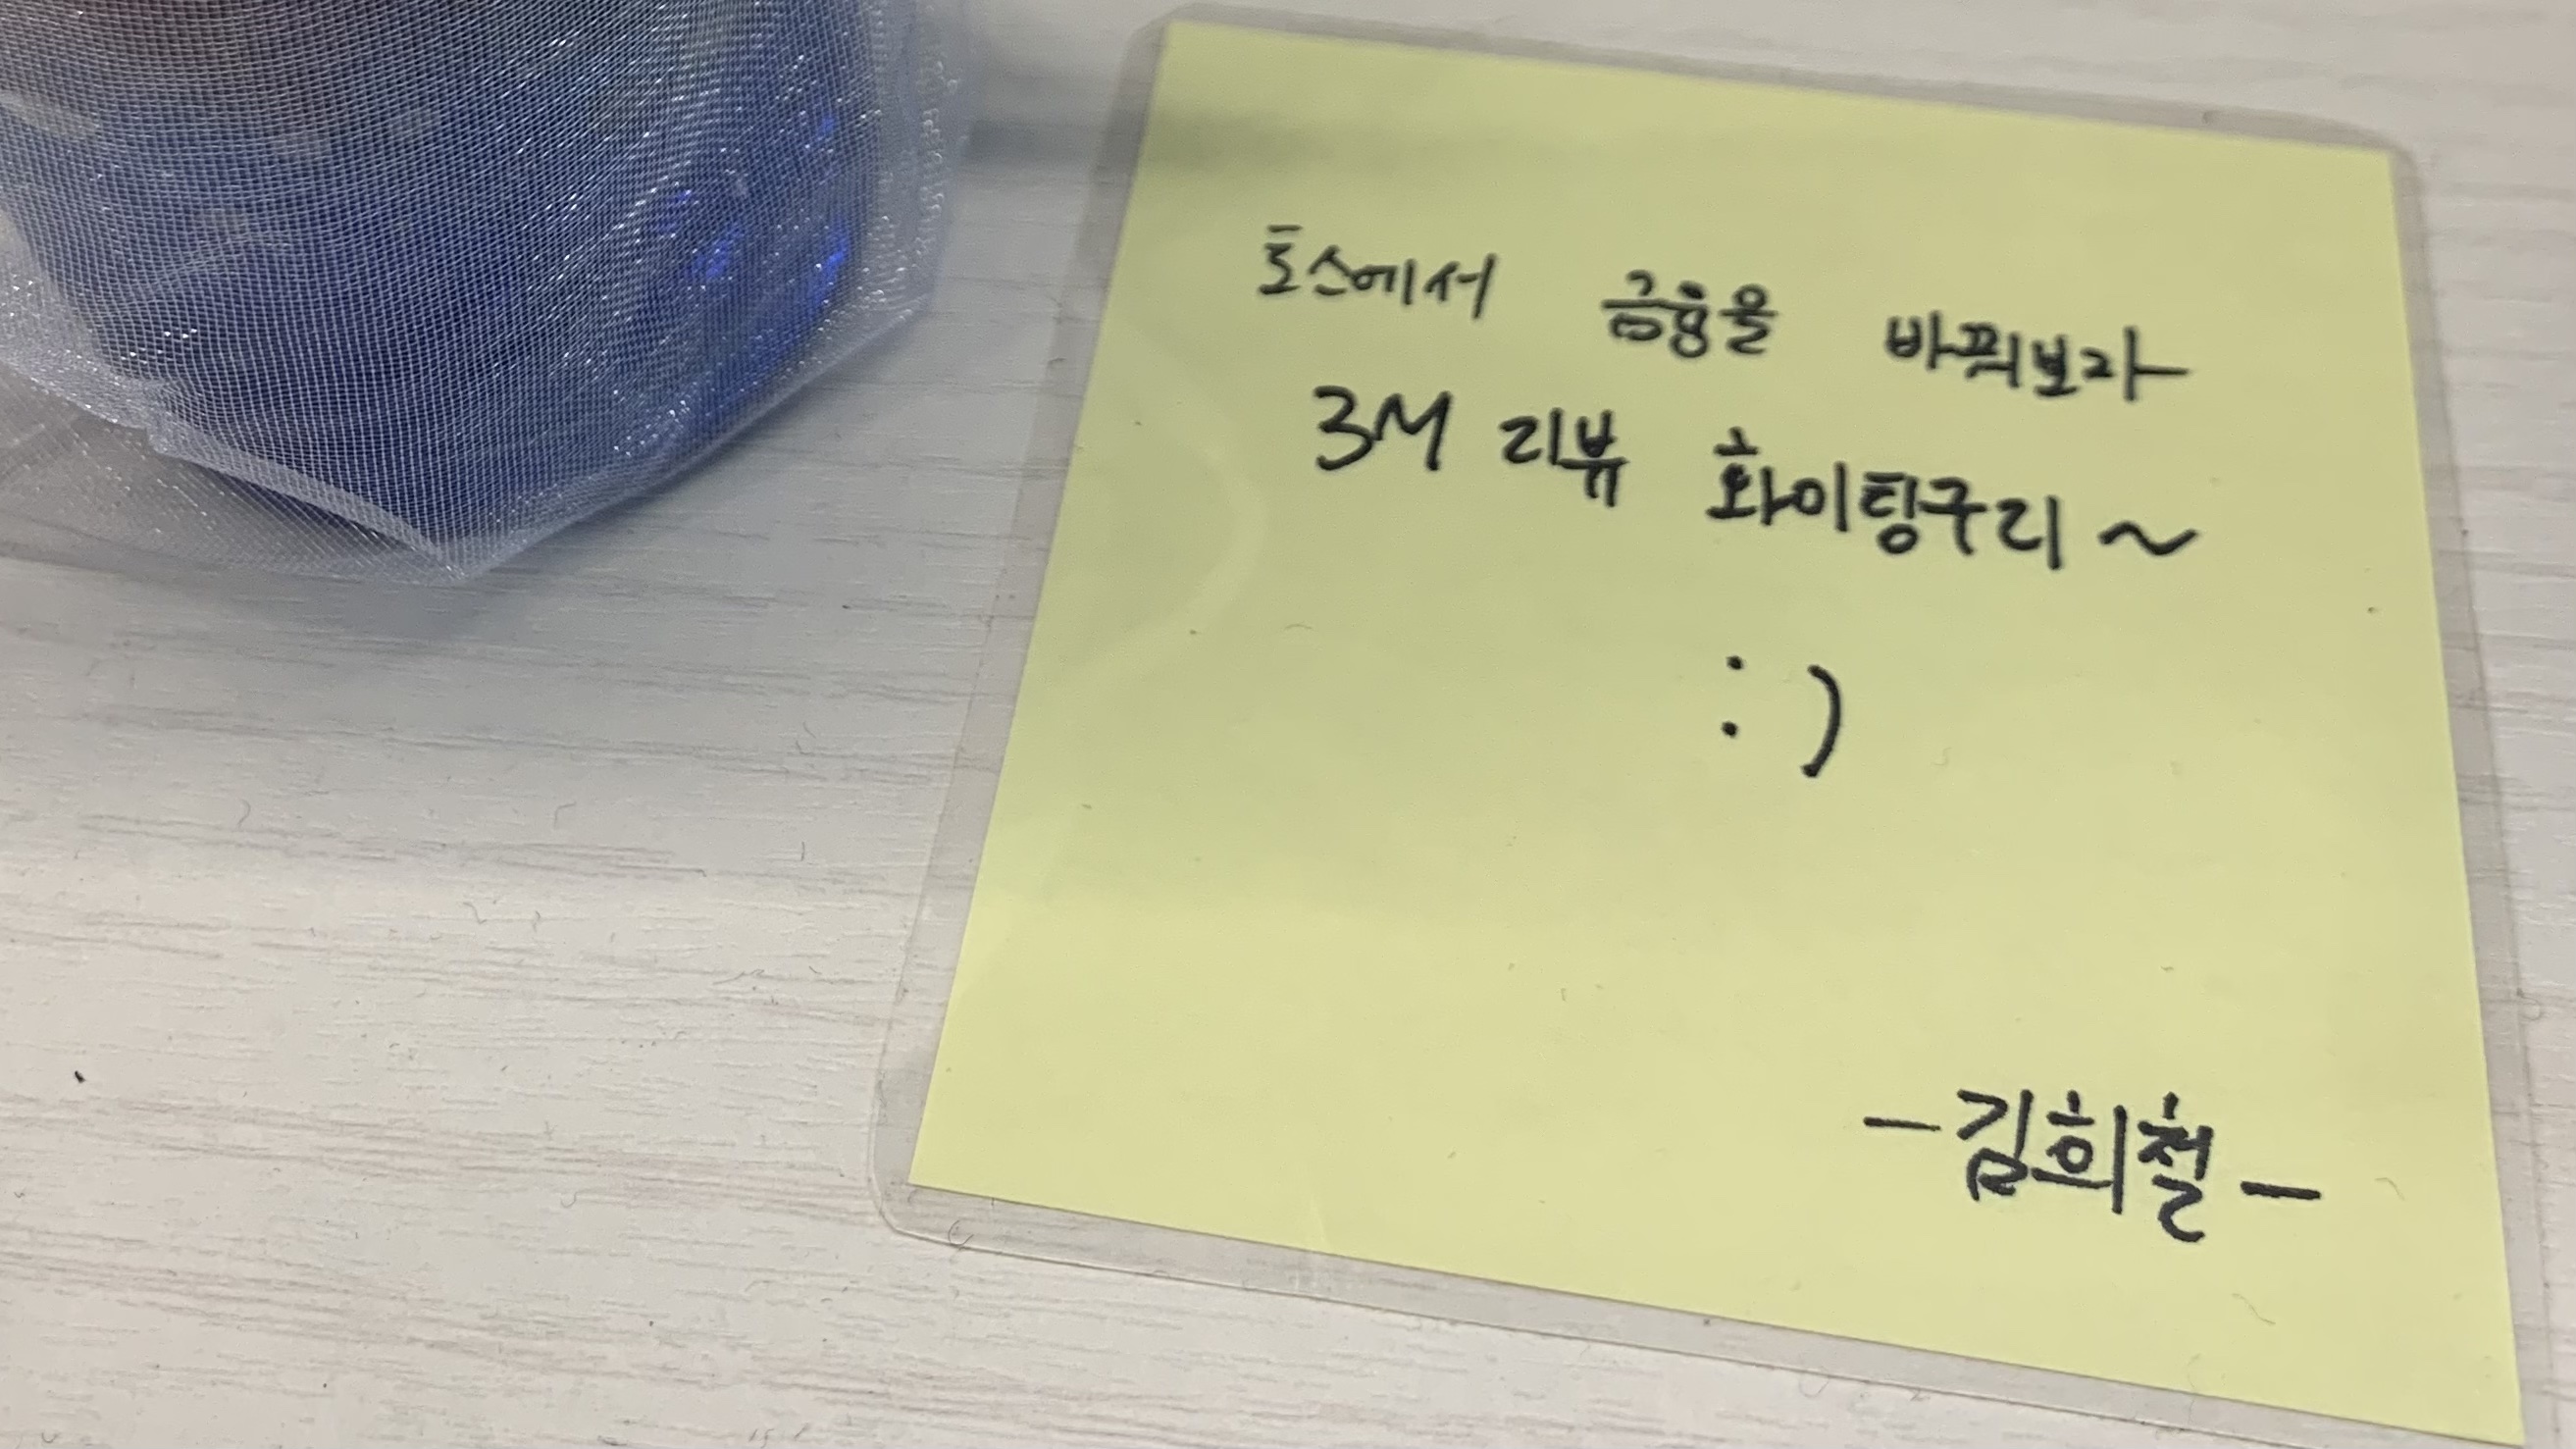 토스에서 금융을 바꿔보자
3M 리뷰 화이팅구리~
:)
-김희철-